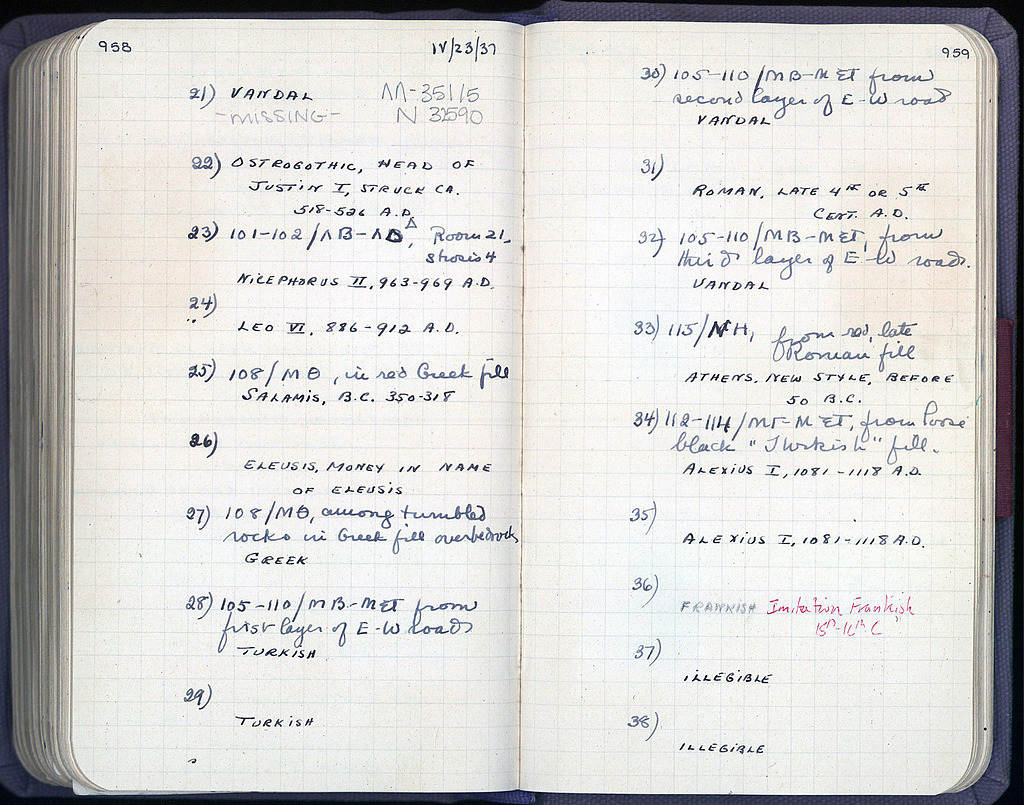 958
IV/23/37
21) VANDAL
ΛΛ-351/5
-MISSING-
N 32590
22) OSTROGOTHIC, HEAD OF
JUSTIN I, STRUCK CA.
518-526 A.D.
23) 101-102/ΛB-ΛΔ, Room 21,
Strosis 4
NICEPHORUS II, 963-969 A.D.
24)
LEO VI, 886-912 A.D.
25) 108/ΜΘ, in red Greek fill
SALAMIS, B.C. 350-318
26)
ELEUSIS, MONEY IN NAME
OF ELEUSIS
27) 108/ΜΘ, among tumbled
rocks in Greek fill over bedrock
GREEK
28) 105-110/MB-MET from
first layer of E-W road
TURKISH
29)
TURKISH
959
30) 105-110/MB-MET from
second layer of E-W road
VANDAL
31)
ROMAN, LATE 4TH OR 5TH
CENT. A.D.
32) 105-110/MB-MET, from
third layer of E-W road.
VANDAL
33) 115/NH, from red, late
Roman fill
ATHENS, NEW STYLE, BEFORE
50 B.C.
34) 112-114/ΜΓ-MET, from loose
black "Turkish" fill.
ALEXIUS I, 1081-1118 A.D.
35)
ALEXIUS I, 1081-1118 A.D.
36)
FRANKISH Imitation Frankish
15th-16th C
37)
ILLEGIBLE
38)
ILLEGIBLE